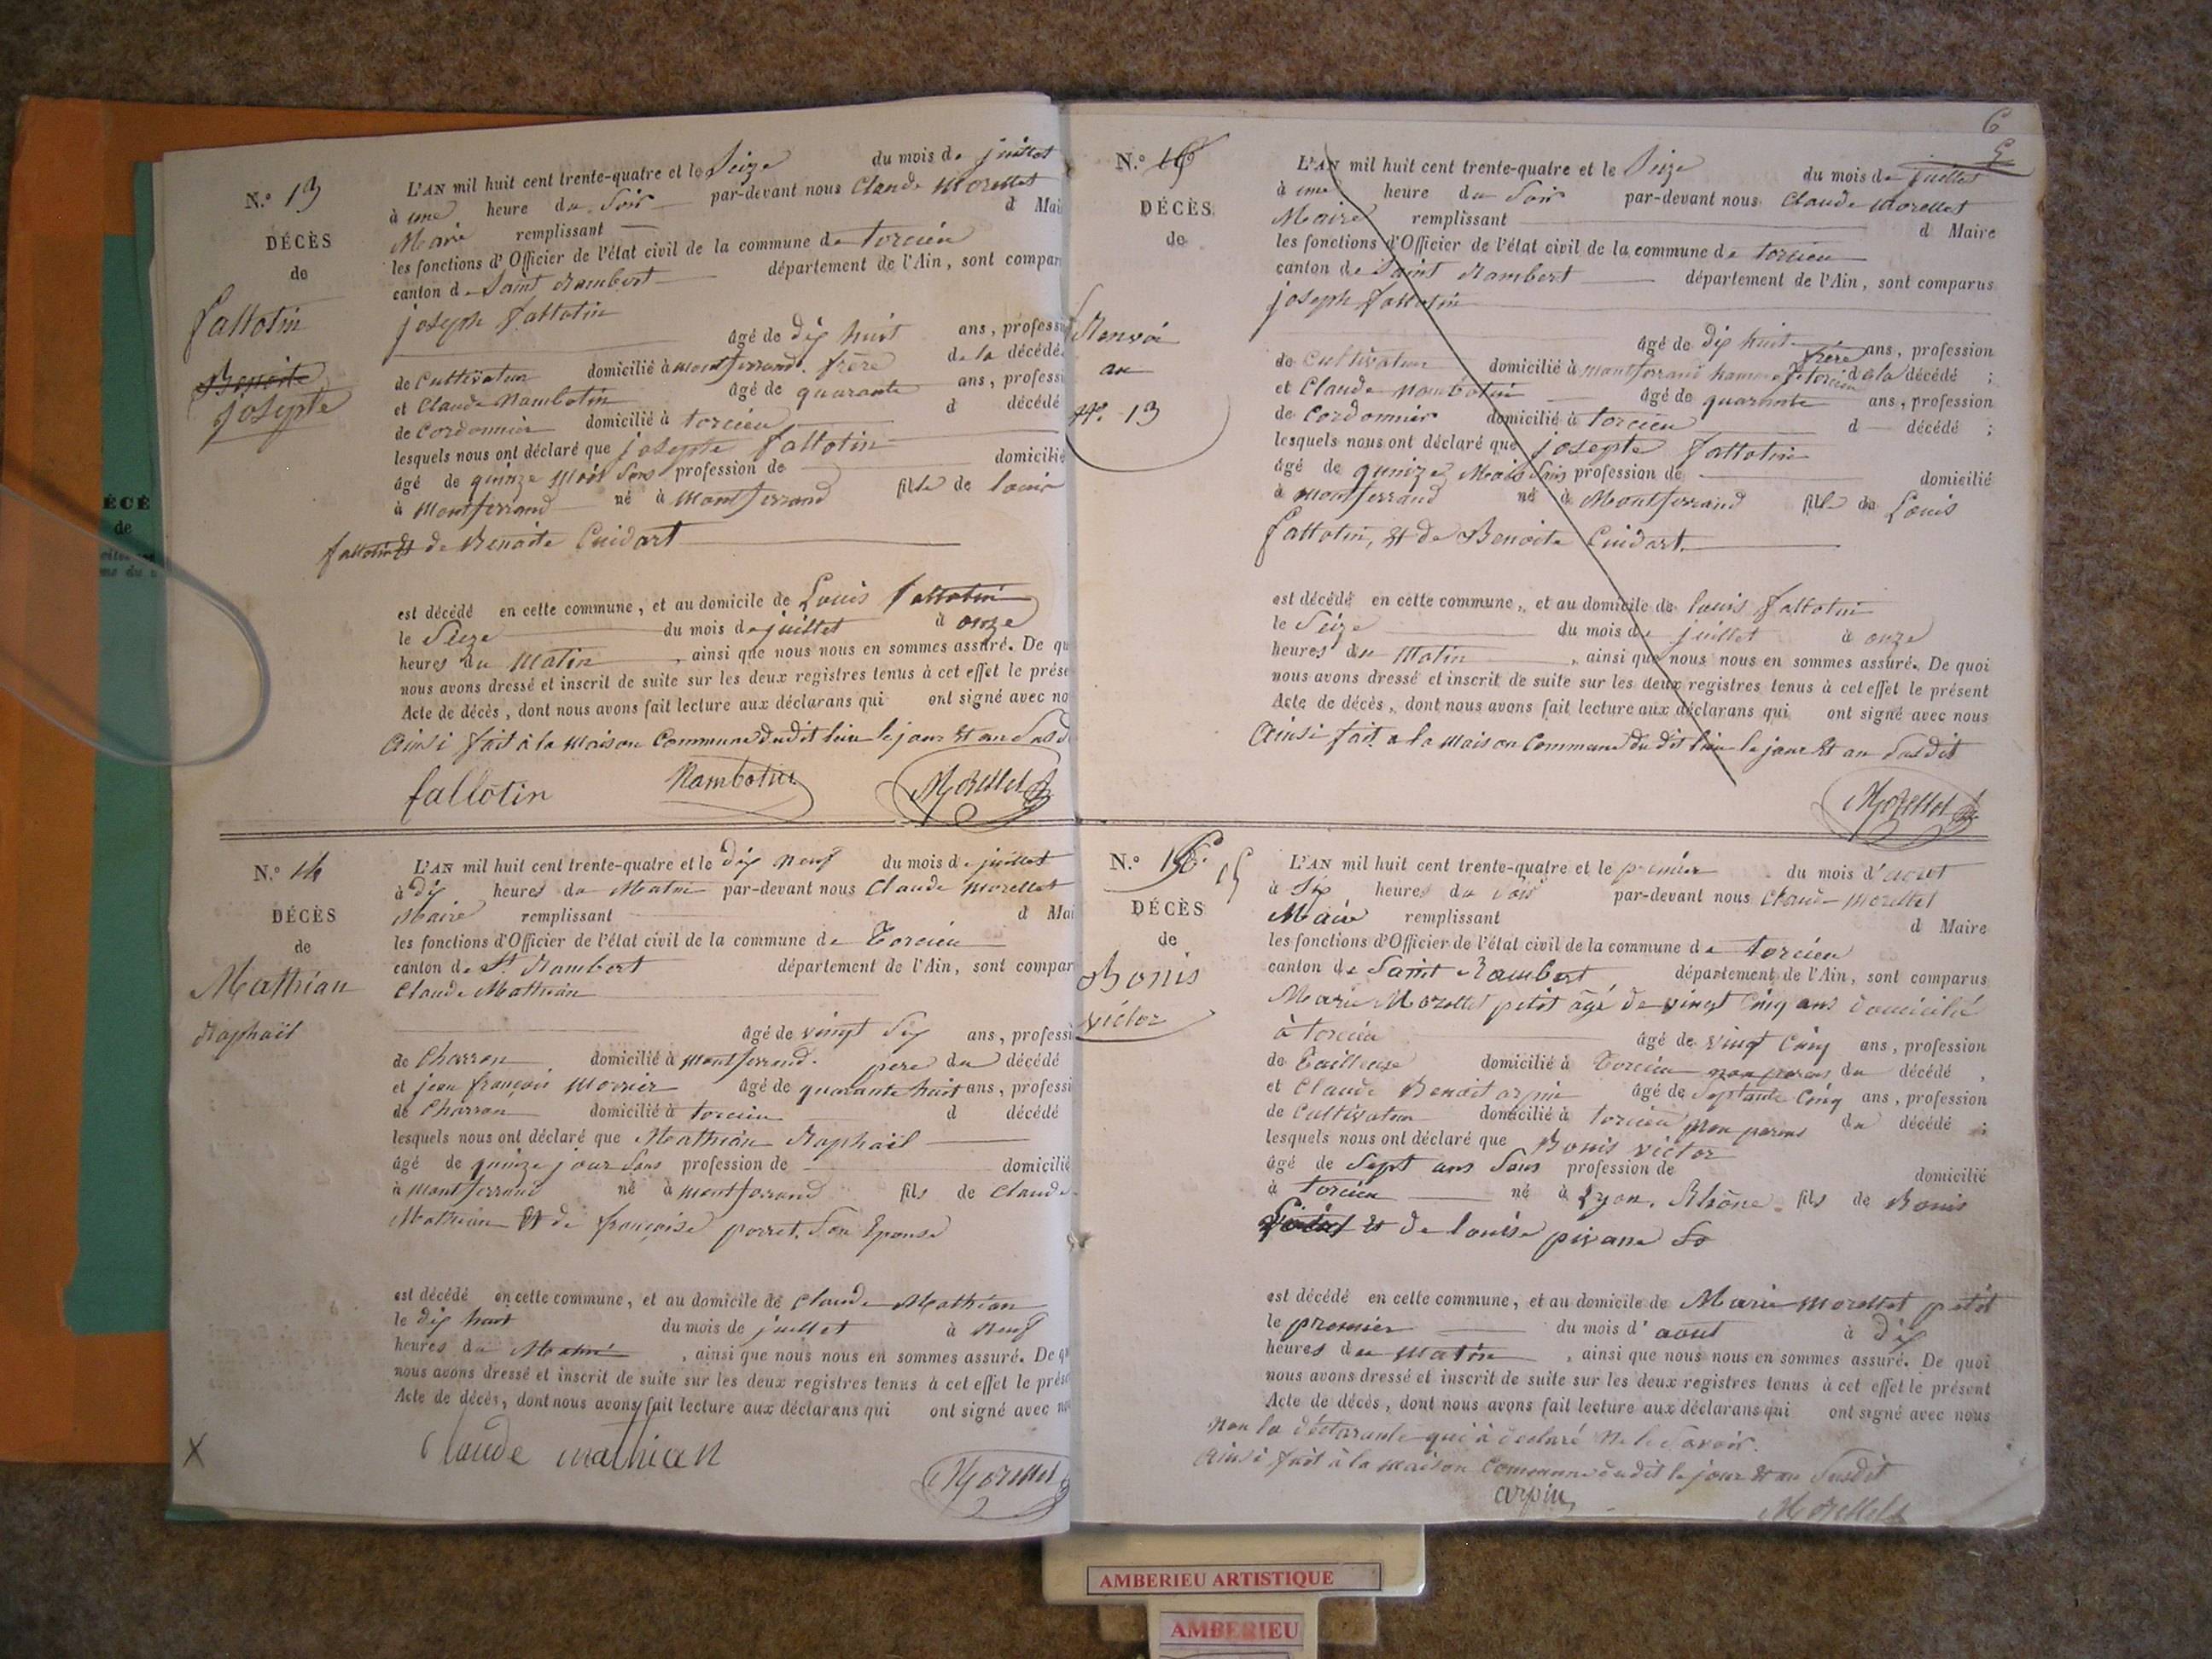 N.º 13
DÉCÈS
de
fallotin
Benoite
josephte
L'AN mil huit cent trente-quatre et le Seize du mois de juillet
à une heure du Soir par-devant nous Claude Morellet
Maire remplissant d Mai
les fonctions d'Officier de l'état civil de la commune de torcieu
canton de Saint Rambert département de l'Ain, sont compar
joseph fallotin
âgé de dix huit ans, professi
de Cultivateur domicilié à montferrand. frère de la décédé
et Claude Nambotin âgé de quarante ans, professi
de Cordonnier domicilié à torcieu d décédé
lesquels nous ont déclaré que josephte fallotin
âgé de quinze Mois Sans profession de domicilié
à Montferrand né à Montferrand fille de louis
fallotin Et de Benoite Cuidart
est décédé en cette commune, et au domicile de Louis fallotin
le Seize du mois de juillet à onze
heures du Matin, ainsi que nous nous en sommes assuré. De qu
nous avons dressé et inscrit de suite sur les deux registres tenus à cet effet le prése
Acte de décès, dont nous avons fait lecture aux déclarans qui ont signé avec no
Ainsi fait à la Maison Commune dudit lieu le jour Et an Susd
fallotin Nambotin Morellet
N.º 14
DÉCÈS
de
Mathian
Raphaël
L'AN mil huit cent trente-quatre et le dix neuf du mois de juillet
à dix heures du Matin par-devant nous Claude Morellet
Maire remplissant d Mai
les fonctions d'Officier de l'état civil de la commune de Torcieu
canton de St Rambert département de l'Ain, sont compar
Claude Mathian
âgé de vingt Six ans, professi
de Charron domicilié à Montferrand. père du décédé
et jean françois Morrier âgé de quarante huit ans, professi
de Charron domicilié à torcieu d décédé
lesquels nous ont déclaré que Mathian Raphaël
âgé de quinze jour Sans profession de domicilié
à Montferrand né à Montferrand fils de Claude
Mathian Et de françoise porret, Son Epouse
est décédé en cette commune, et au domicile de Claude Mathian
le dix huit du mois de juillet à neuf
heures du Matin, ainsi que nous nous en sommes assuré. De q
nous avons dressé et inscrit de suite sur les deux registres tenus à cet effet le prése
Acte de décès, dont nous avons fait lecture aux déclarans qui ont signé avec no
X
Claude mathian Morellet
6
5
N.º 15
DÉCÈS
de
Renvoi
au
Nº. 13
L'AN mil huit cent trente-quatre et le Seize du mois de juillet
à une heure du Soir par-devant nous Claude Morellet
Maire remplissant d Maire
les fonctions d'Officier de l'état civil de la commune de torcieu
canton de Saint Rambert département de l'Ain, sont comparus
joseph fallotin
âgé de dix huit ans, profession
de Cultivateur domicilié à montferrand hameau de torcieu frère de la décédé ;
et Claude Nambotin âgé de quarante ans, profession
de Cordonnier domicilié à torcieu d décédé ;
lesquels nous ont déclaré que josephte fallotin
âgé de quinze Mois Sans profession de domicilié
à Montferrand né à Montferrand fille de Louis
fallotin, Et de Benoite Cuidart.
est décédé en cette commune, et au domicile de louis fallotin
le Seize du mois de juillet à onze
heures du Matin, ainsi que nous nous en sommes assuré. De quoi
nous avons dressé et inscrit de suite sur les deux registres tenus à cet effet le présent
Acte de décès, dont nous avons fait lecture aux déclarans qui ont signé avec nous
Ainsi fait à la Maison Commune du dit lieu le jour Et an Susdit
Morellet
N.º 16 15
DÉCÈS
de
Bonis
victor
L'AN mil huit cent trente-quatre et le premier du mois d'aout
à Six heures du Soir par-devant nous Claude Morellet
Maire remplissant d Maire
les fonctions d'Officier de l'état civil de la commune de torcieu
canton de Saint Rambert département de l'Ain, sont comparus
Marie Morellet petit âgé de vingt Cinq ans domicilié
à torcieu âgé de vingt Cinq ans, profession
de Tailleuse domicilié à Torcieu non parens du décédé ,
et Claude Benoit arpin âgé de Septante Cinq ans, profession
de Cultivateur domicilié à torcieu non parens du décédé ;
lesquels nous ont déclaré que Bonis victor
âgé de Sept ans Sans profession de domicilié
à torcieu né à Lyon, Rhône. fils de Bonis
Et de louise pivane
est décédé en cette commune, et au domicile de Marie Morellet petit
le premier du mois d'aout à dix
heures du Matin, ainsi que nous nous en sommes assuré. De quoi
nous avons dressé et inscrit de suite sur les deux registres tenus à cet effet le présent
Acte de décès, dont nous avons fait lecture aux déclarans qui ont signé avec nous
non la déclarante qui à déclaré Ne le Savoir.
Ainsi fait à la Maison Commune dudit le jour Et an Susdit
arpin Morellet
ÉCÈ
de
AMBERIEU ARTISTIQUE
AMBERIEU